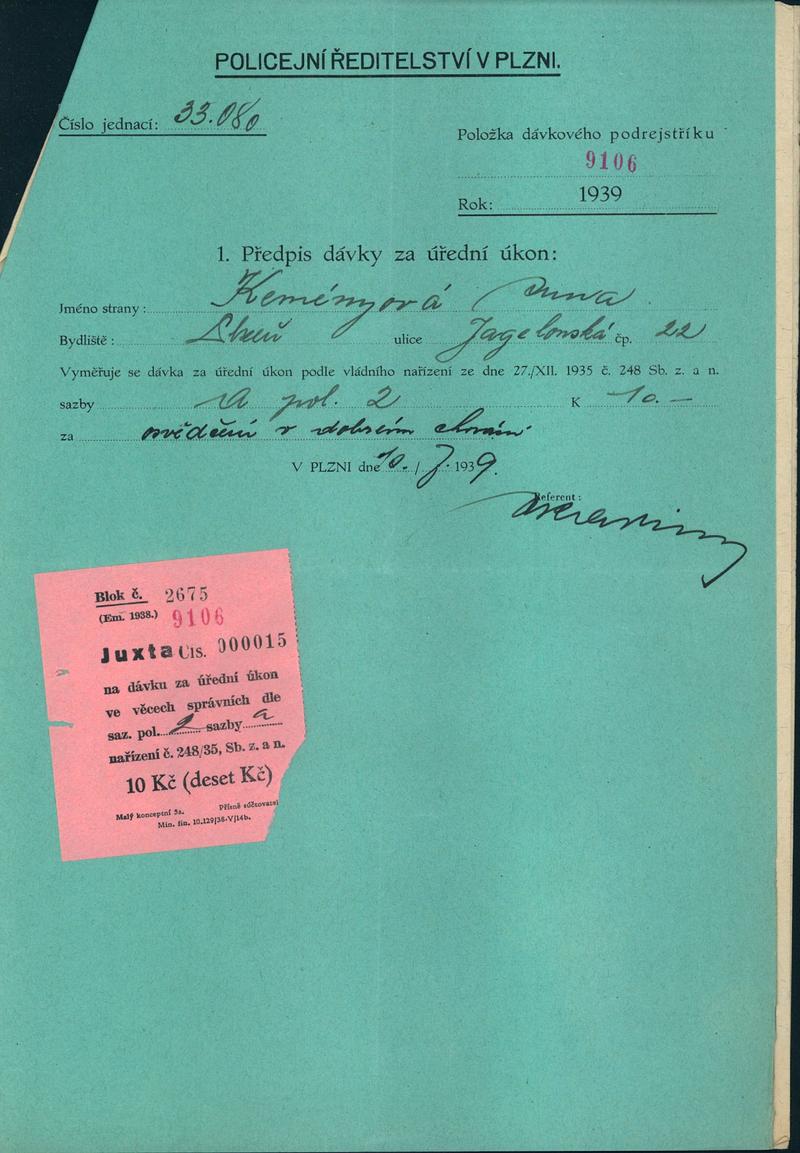 POLICEJNÍ ŘEDITELSTVÍ V PLZNI.
Číslo jednací: 33.080
Položka dávkového podrejstříku
9106
Rok: 1939
1. Předpis dávky za úřední úkon:
Jméno strany: Keményová Anna
Bydliště: Plzeň ulice Jagelonská čp. 22
Vyměřuje se dávka za úřední úkon podle vládního nařízení ze dne 27./XII. 1935 č. 248 Sb. z. a n.
sazby A pol. 2 K 10.-
za osvědčení o dobrém chování
V PLZNI dne 10./7. 1939.
Referent:
Blok č. 2675
(Em. 1938.) 9106
Juxta Čís. 000015
na dávku za úřední úkon
ve věcech správních dle
saz. pol. 2 sazby a
nařízení č. 248/35, Sb. z. a n.
10 Kč (deset Kč)
Malý konceptní 5a. Přísně súčtovatel
Min. fin. 10.129/38-V/14b.